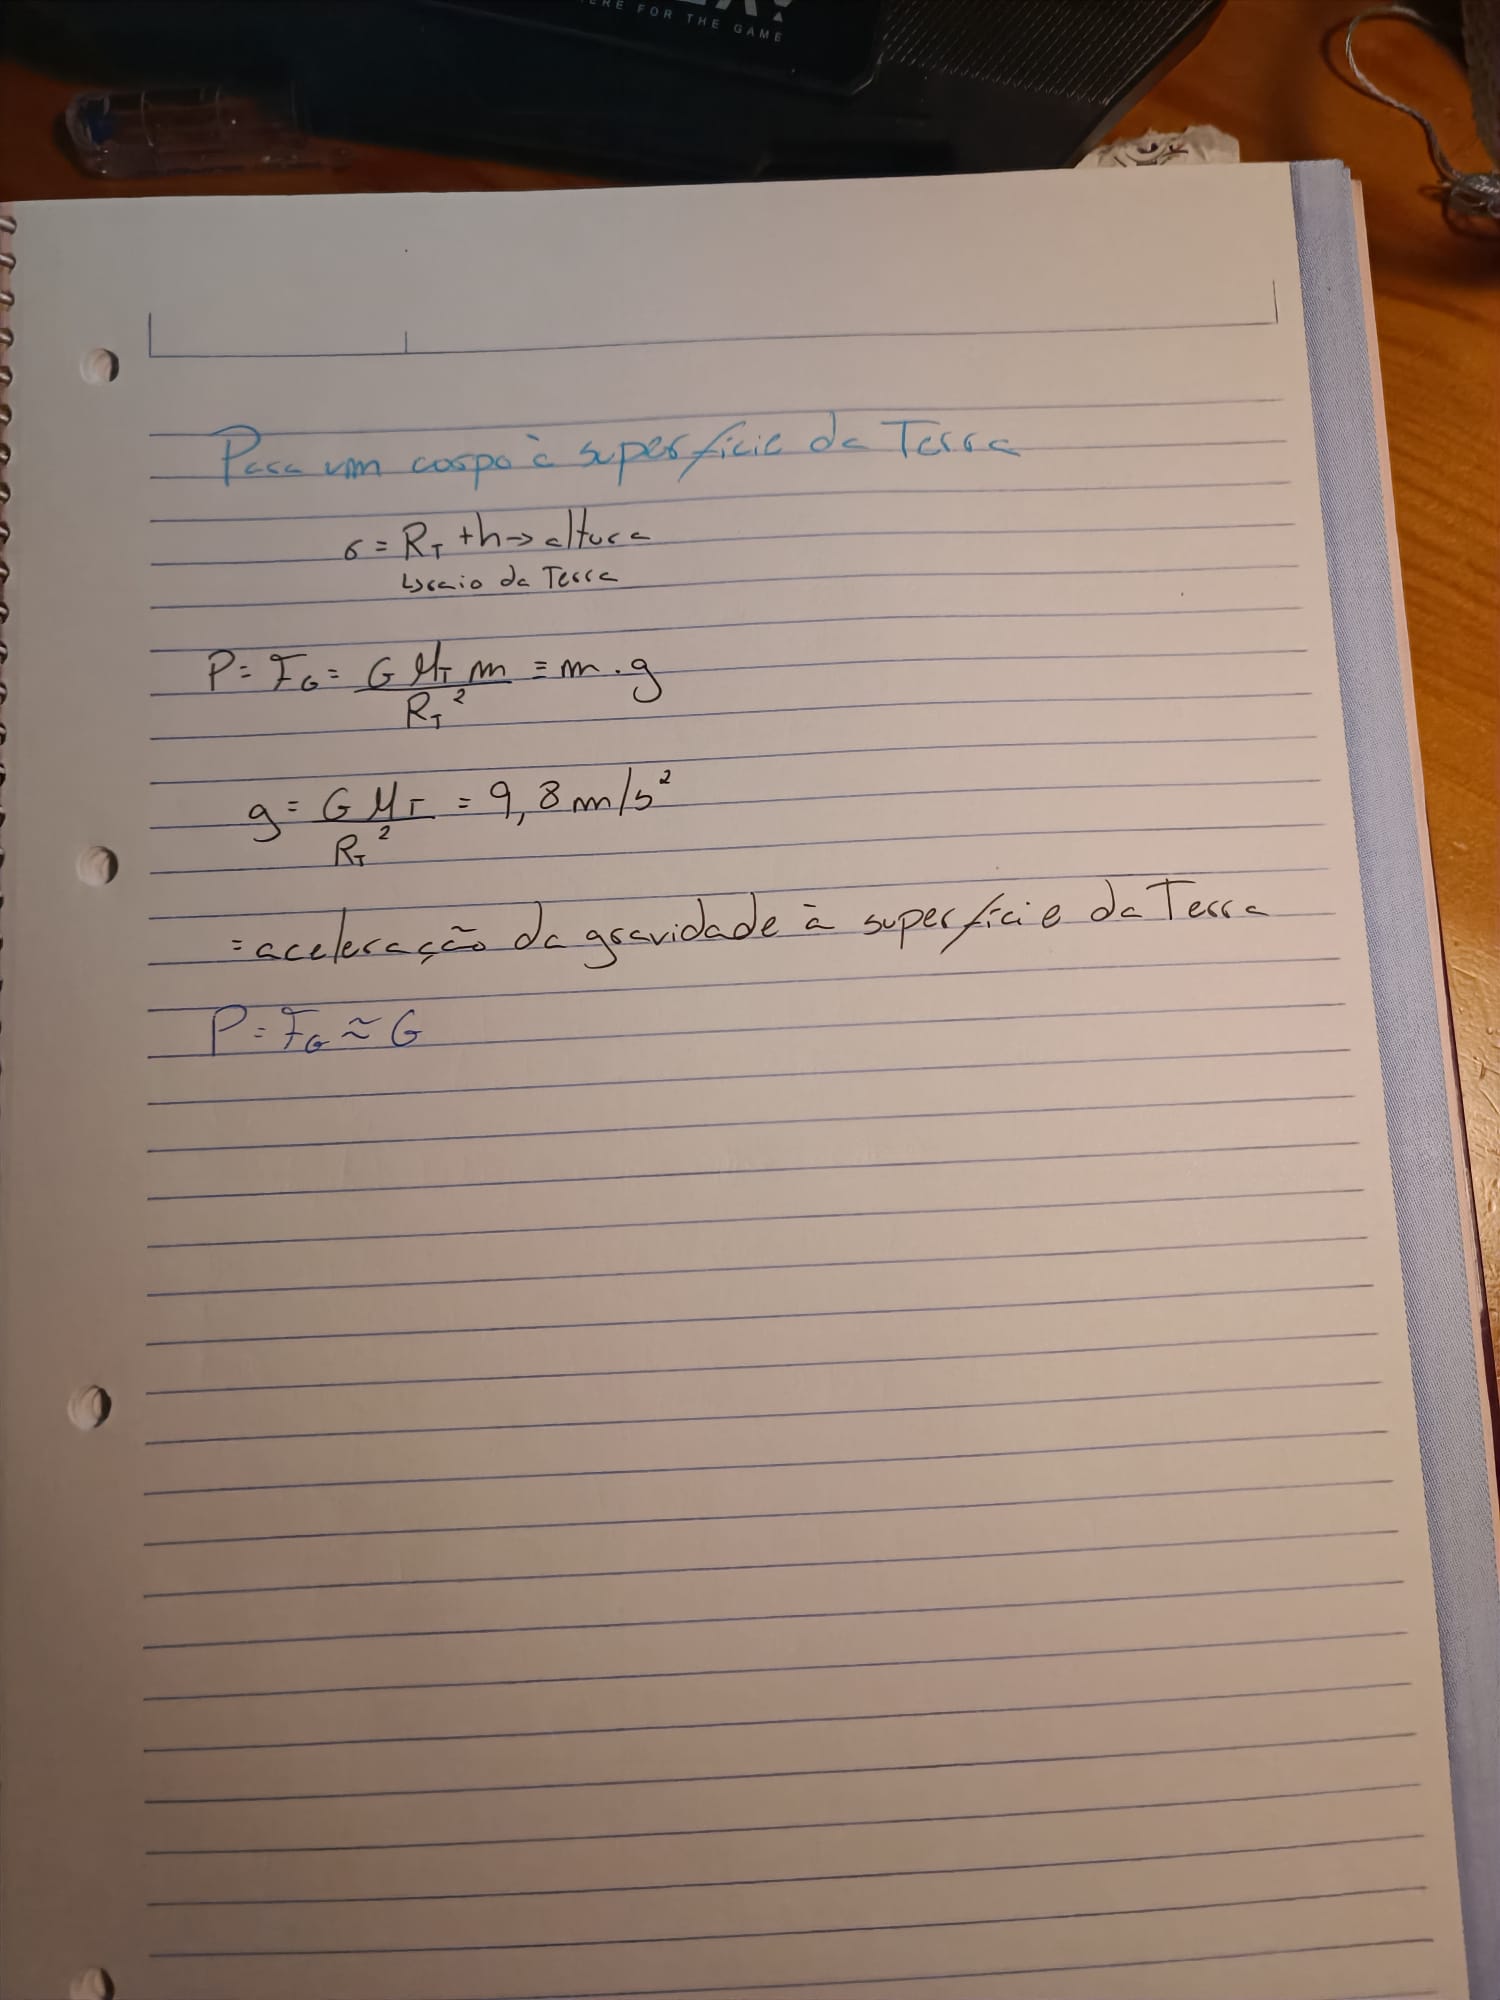 ERE FOR THE GAME
Para um corpo à superfície da Terra
r = R_T + h → altura
↳ raio da Terra
P = F_G = G M_T m / R_T² = m . g
g = G M_T / R_T² = 9,8 m/s²
= aceleração da gravidade à superfície da Terra
P = F_G ≈ G